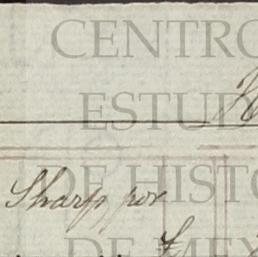 CENTRO
ESTUD
DE HIST
Sharp, por
DE MEX